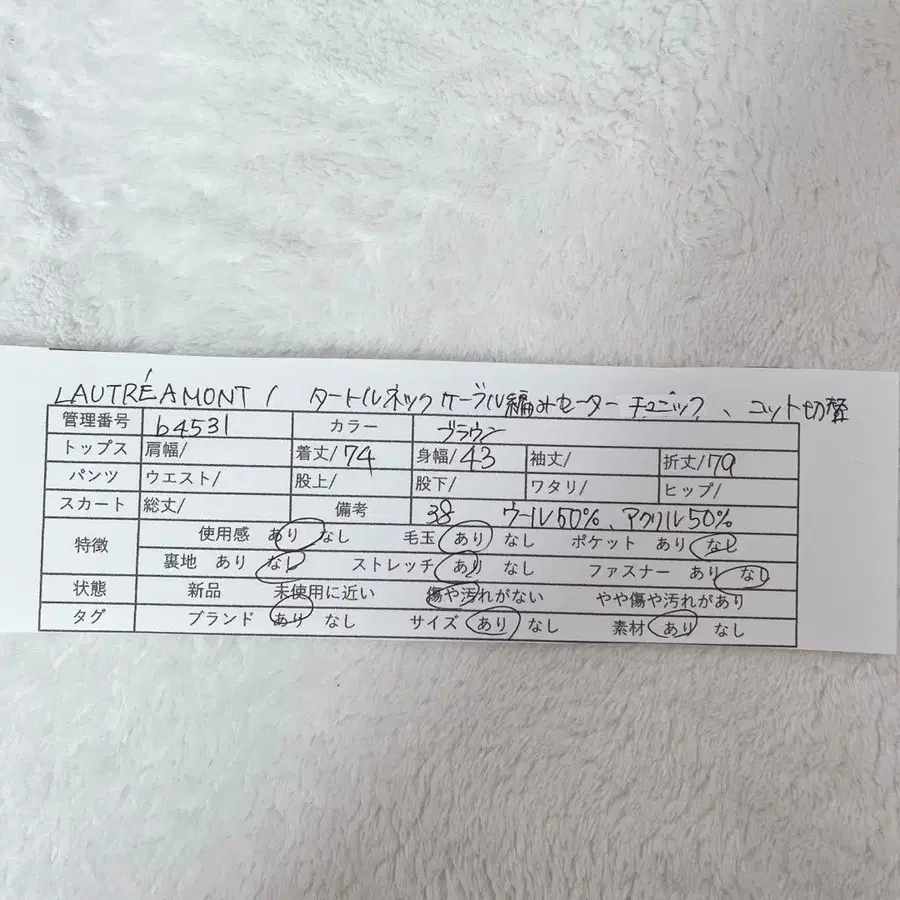 LAUTRÉAMONT / タートルネックケーブル編みセーター チュニック、コット切替
管理番号 b4531 カラー ブラウン
トップス 肩幅/ 着丈/74 身幅/43 袖丈/ 裄丈/79
パンツ ウエスト/ 股上/ 股下/ ワタリ/ ヒップ/
スカート 総丈/ 備考 38 ウール50%、アクリル50%
特徴 使用感 あり なし 毛玉 あり なし ポケット あり なし
裏地 あり なし ストレッチ あり なし ファスナー あり なし
状態 新品 未使用に近い 傷や汚れがない やや傷や汚れがあり
タグ ブランド あり なし サイズ あり なし 素材 あり なし